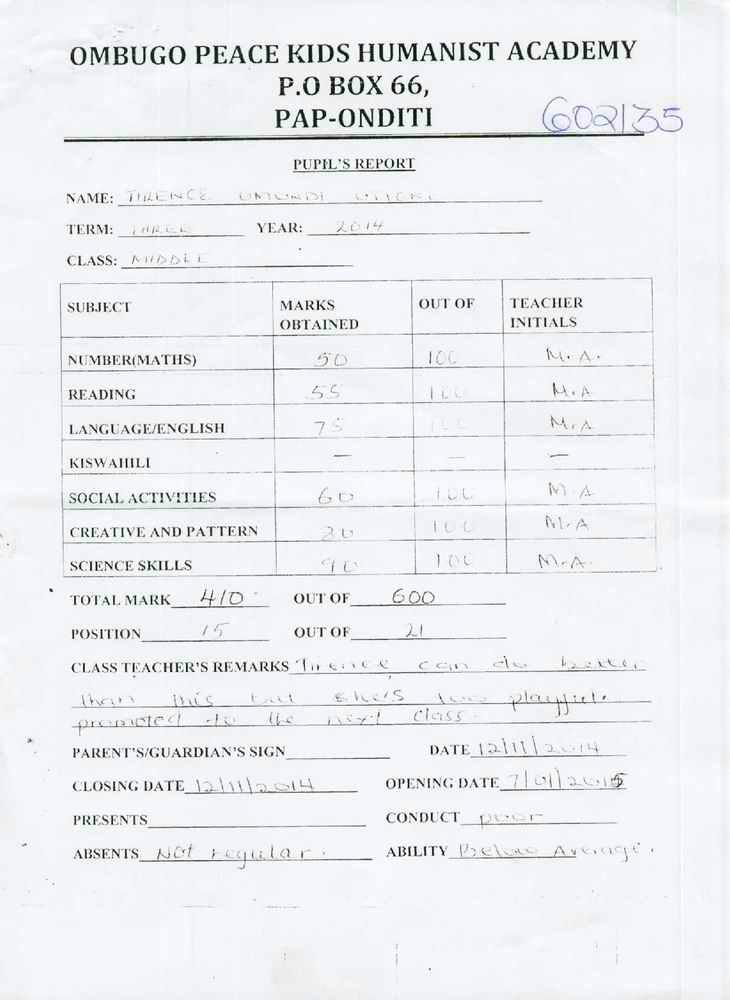 OMBUGO PEACE KIDS HUMANIST ACADEMY
P.O BOX 66,
PAP-ONDITI
602135
PUPIL'S REPORT
NAME: TIRENCE OMONDI
TERM: THREE YEAR: 2014
CLASS: MIDDLE
SUBJECT MARKS OBTAINED OUT OF TEACHER INITIALS
NUMBER(MATHS) 50 100 M.A.
READING 55 100 M.A
LANGUAGE/ENGLISH 75 100 M.A
KISWAHILI — — —
SOCIAL ACTIVITIES 60 100 M.A
CREATIVE AND PATTERN 80 100 M.A
SCIENCE SKILLS 90 100 M.A.
TOTAL MARK 410 OUT OF 600
POSITION 15 OUT OF 21
CLASS TEACHER'S REMARKS Tirence can do better
than this but she's too playful.
promoted to the next class.
PARENT'S/GUARDIAN'S SIGN DATE 12/11/2014
CLOSING DATE 12/11/2014 OPENING DATE 7/01/2015
PRESENTS CONDUCT poor
ABSENTS Not regular. ABILITY Below Average.